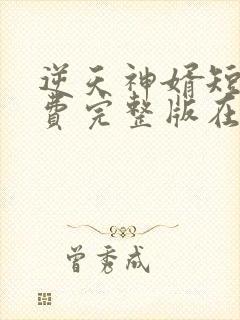 逆天神婿短
费完整版在
曾秀成